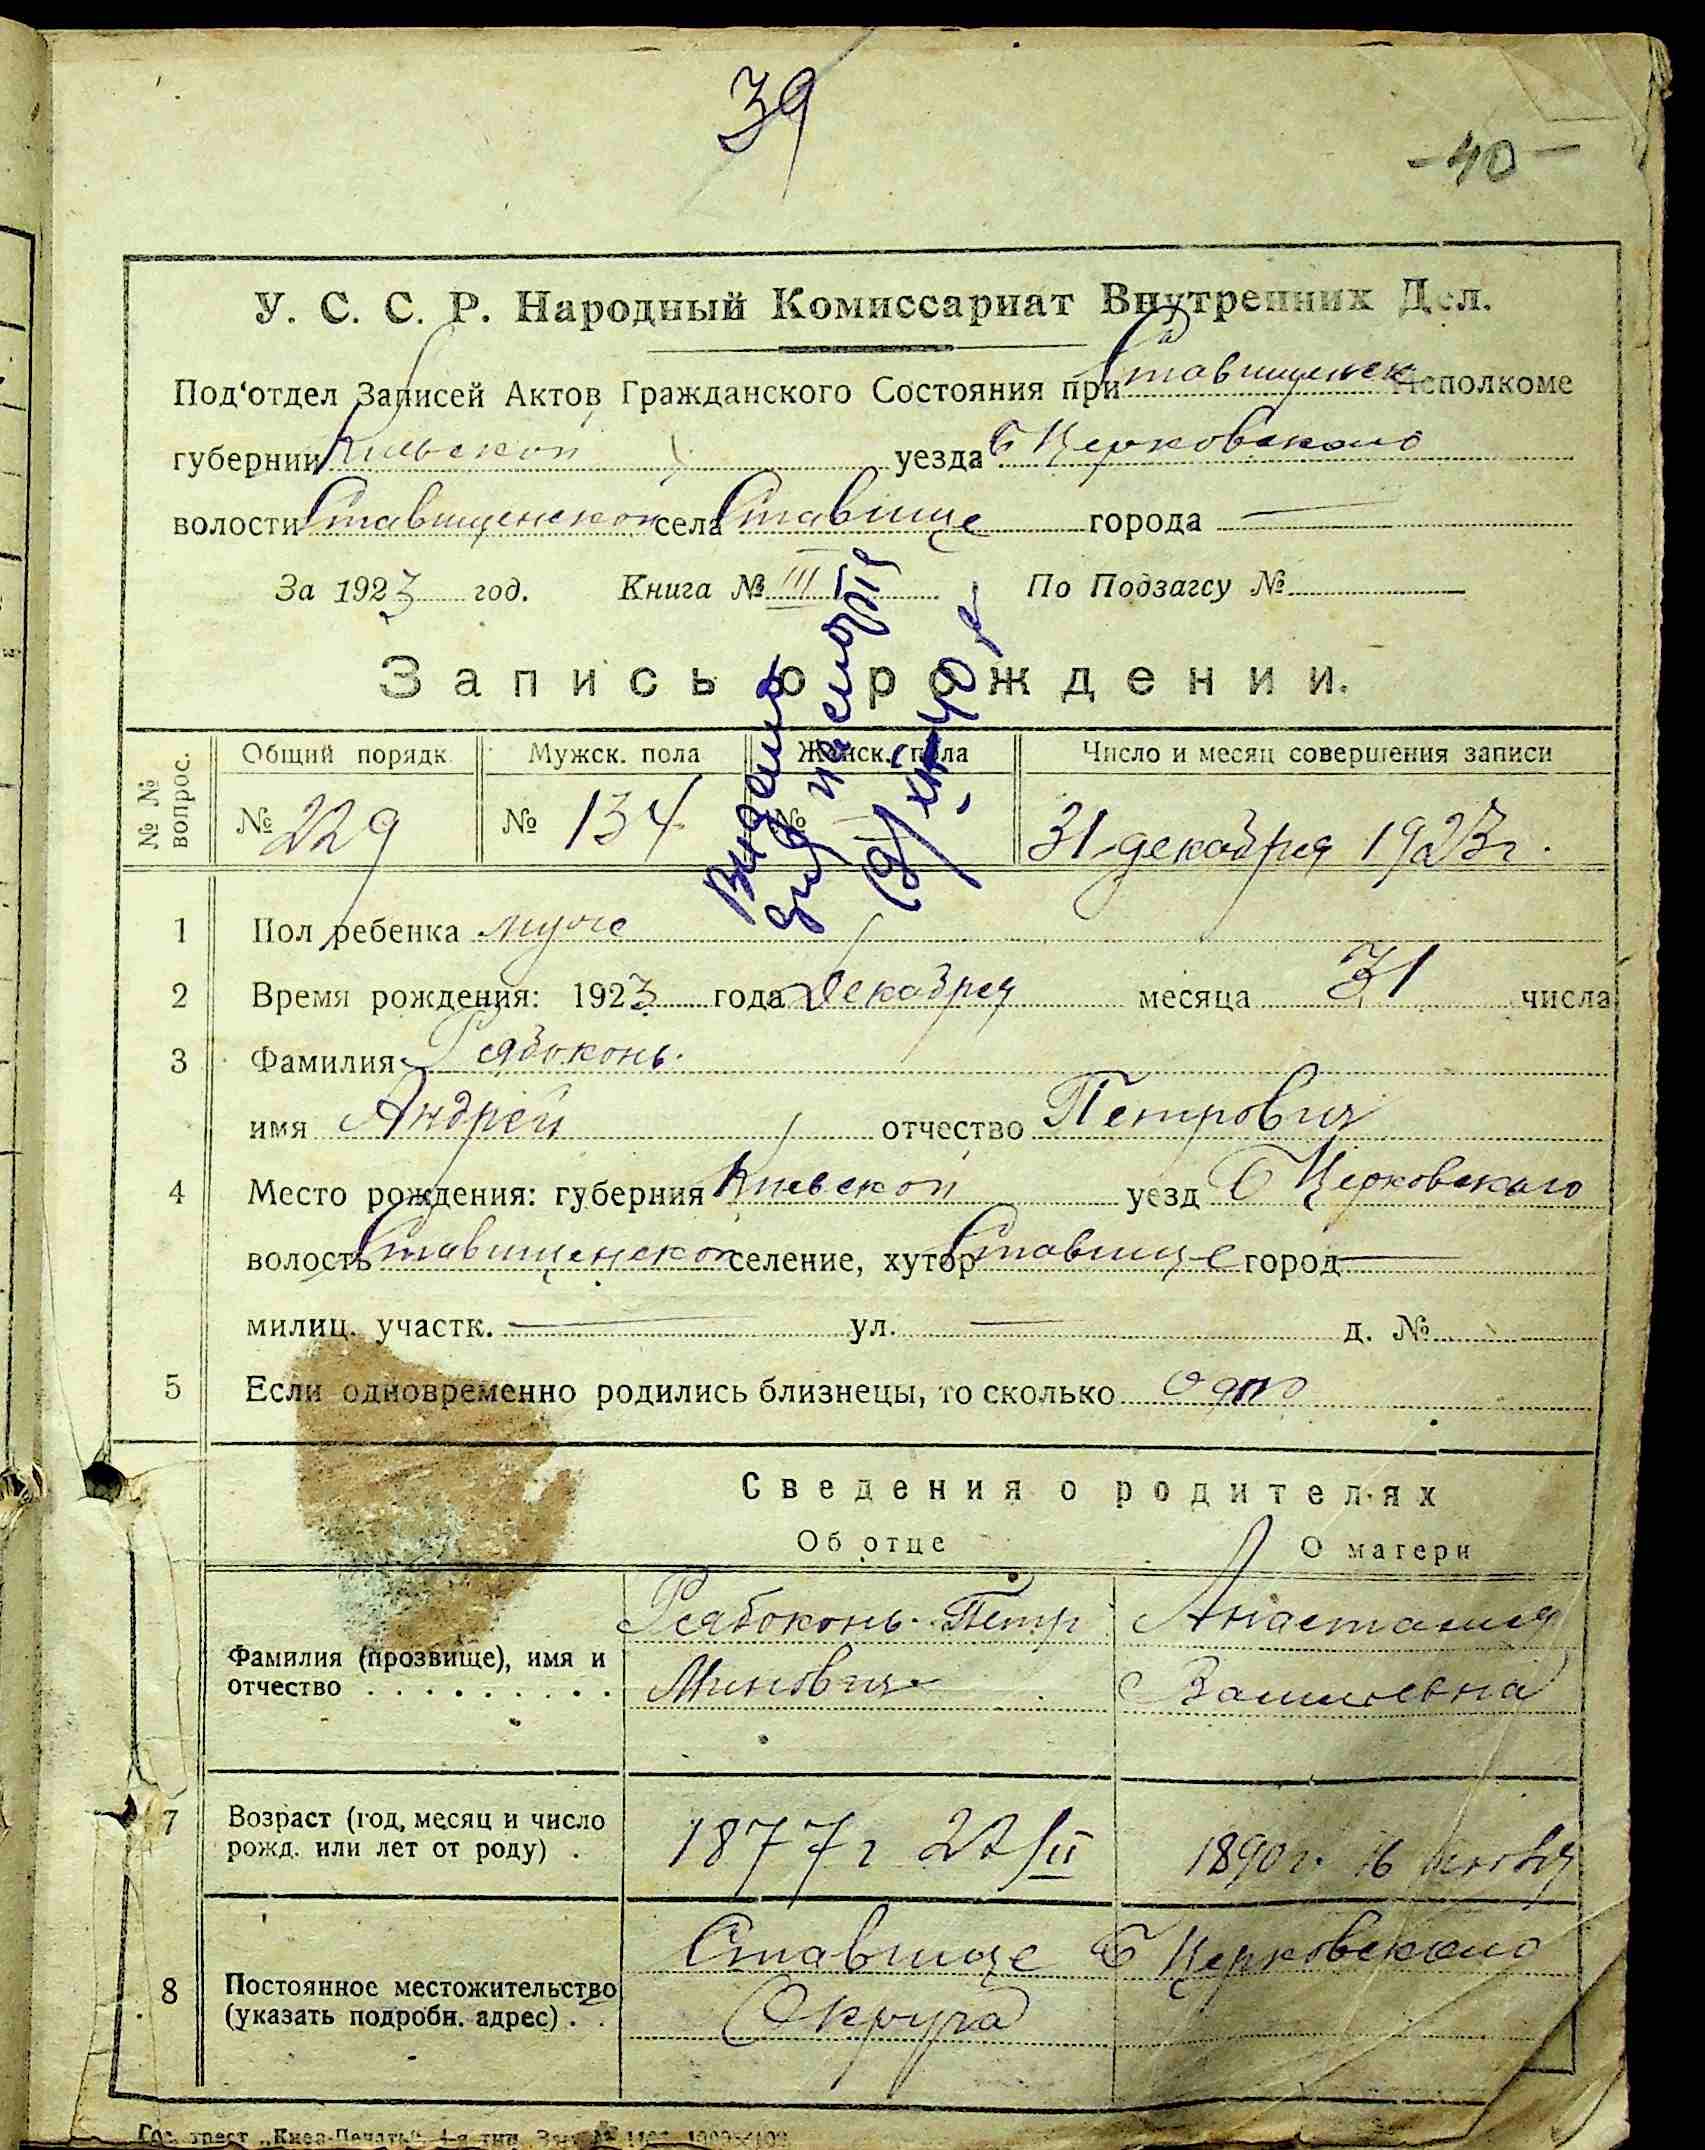 39
-40-
У. С. С. Р. Народный Комиссариат Внутренних Дел.
Под'отдел Записей Актов Гражданского Состояния при Ставищенск Исполкоме
губернии Киевской уезда Б Церковского
волости Ставищенской села Ставище города —
За 1923 год. Книга № III По Подзагсу №
Запись о рождении.
№ № вопрос. Общий порядк. Мужск. пола Женск. пола Число и месяц совершения записи
№ 229 № 134 № — 31 декабря 1923 г.
1 Пол ребенка муж
2 Время рождения: 1923 года Декабря месяца 31 числа
3 Фамилия Рябоконь.
имя Андрей отчество Петрович
4 Место рождения: губерния Киевской уезд Б Церковскаго
волость Ставищенской селение, хутор Ставище город —
милиц. участк. — ул. — д. №
5 Если одновременно родились близнецы, то сколько одно
Сведения о родителях
Об отце О матери
Фамилия (прозвище), имя и Рябоконь Петр Анастасия
отчество . . . . . . . . . Минович Васильевна
7 Возраст (год, месяц и число
рожд. или лет от роду) . 1877 г 22/II 1890 г. 16
8 Постоянное местожительство Ставище Б Церковского
(указать подробн. адрес) . . Округа
Гос. трест „Киев-Печать" 4-я тип.